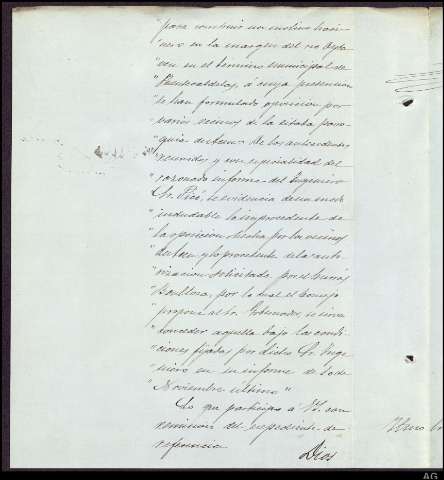 "para construir un molino hari-
"nero en la margen del rio Oita-
"ven en el termino municipal de
"Puentecaldelas, á cuya pretension
"se han formulado oposicion por
"varios vecinos de la citada parro-
"quia de Aem. De los antecedentes
"reunidos y con especialidad del
"razonado informe del Ingeniero
"Sr. Picó, se evidencia de un modo
"indudable lo improcedente de
"la oposicion hecha por los vecinos
y lo procedente de la auto-
"rizacion solicitada por el
"Boullosa, por lo cual el Consejo
"propone al Sr. Gobernador, se sirva
"conceder aquella bajo las condi-
"ciones fijadas por dicho Sr. Inge-
"niero en su informe de 5 de
"Noviembre ultimo"
Lo que participo á V.S. con
remision del expediente de
referencia
Dios
AG